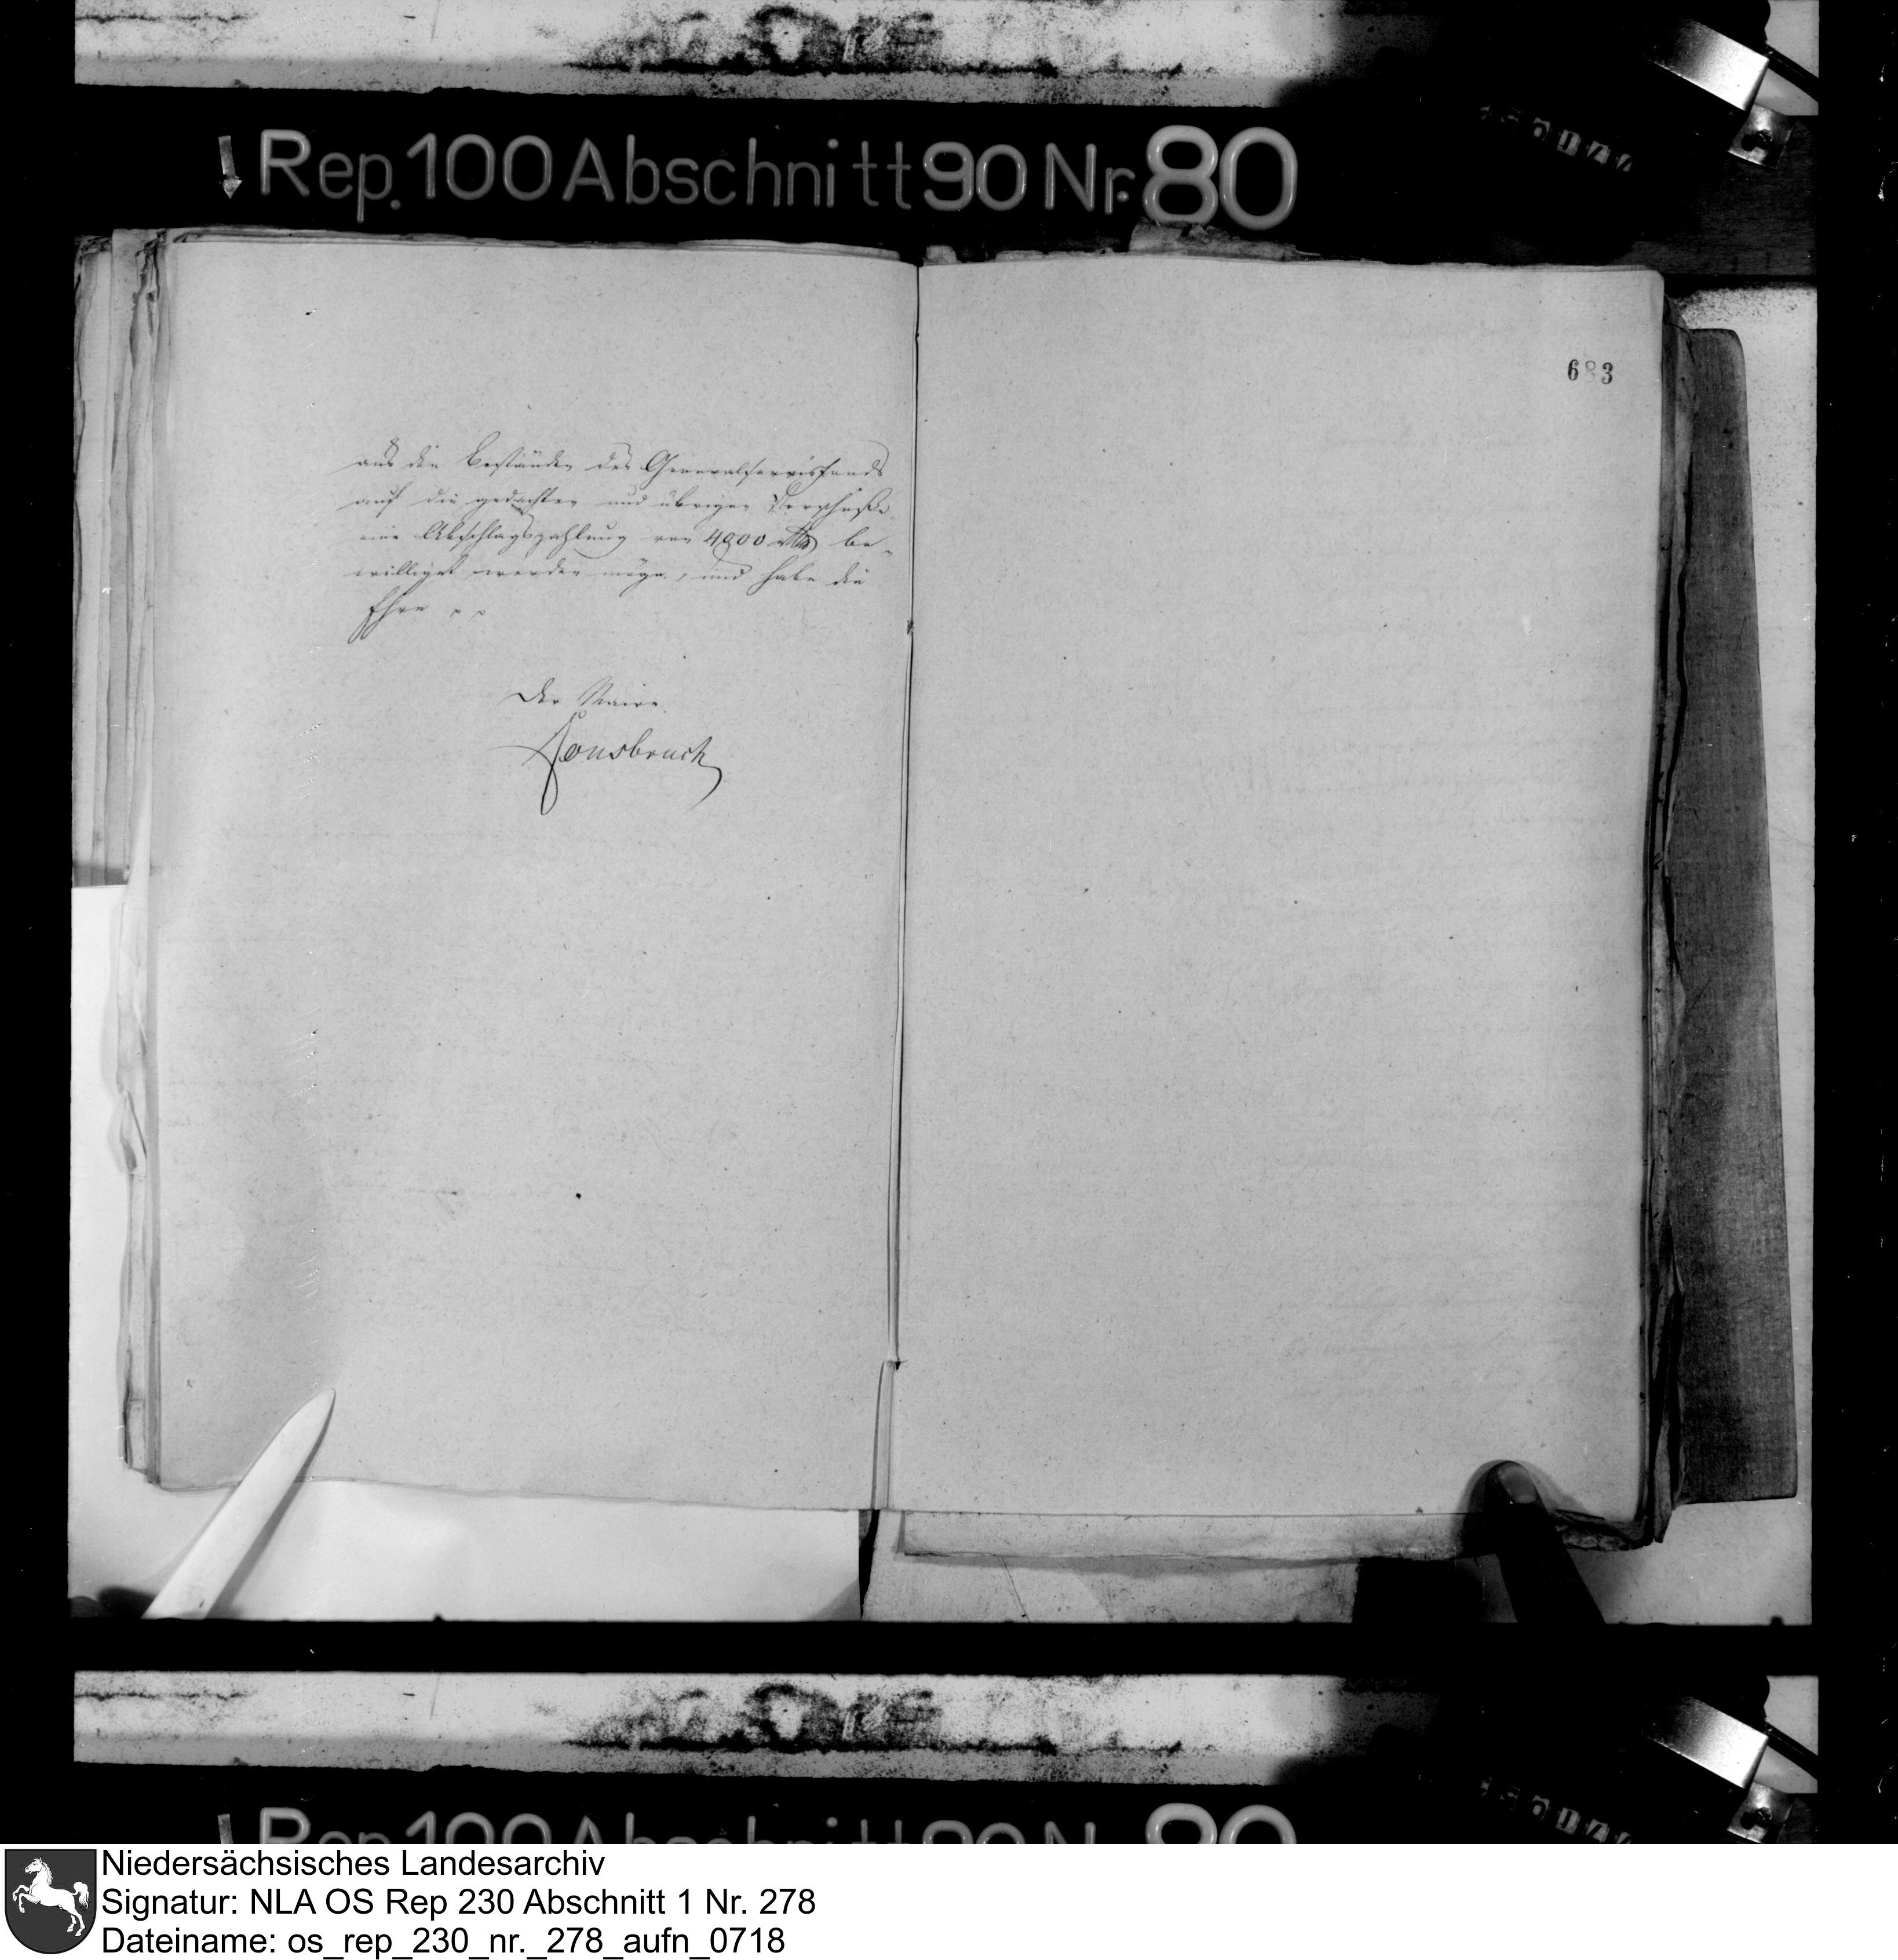 Rep. 100 Abschnitt 90 Nr. 80
683
aus den Beständen des Generalservisfonds
auf die gedachten und übrigen Vorschüße
eine Abschlagszahlung von 4000 be-
williget werden möge, und habe die
Ehre
Der Maire
Rep. 100 Abschnitt 90 N 80
Niedersächsisches Landesarchiv
Signatur: NLA OS Rep 230 Abschnitt 1 Nr. 278
Dateiname: os_rep_230_nr._278_aufn_0718